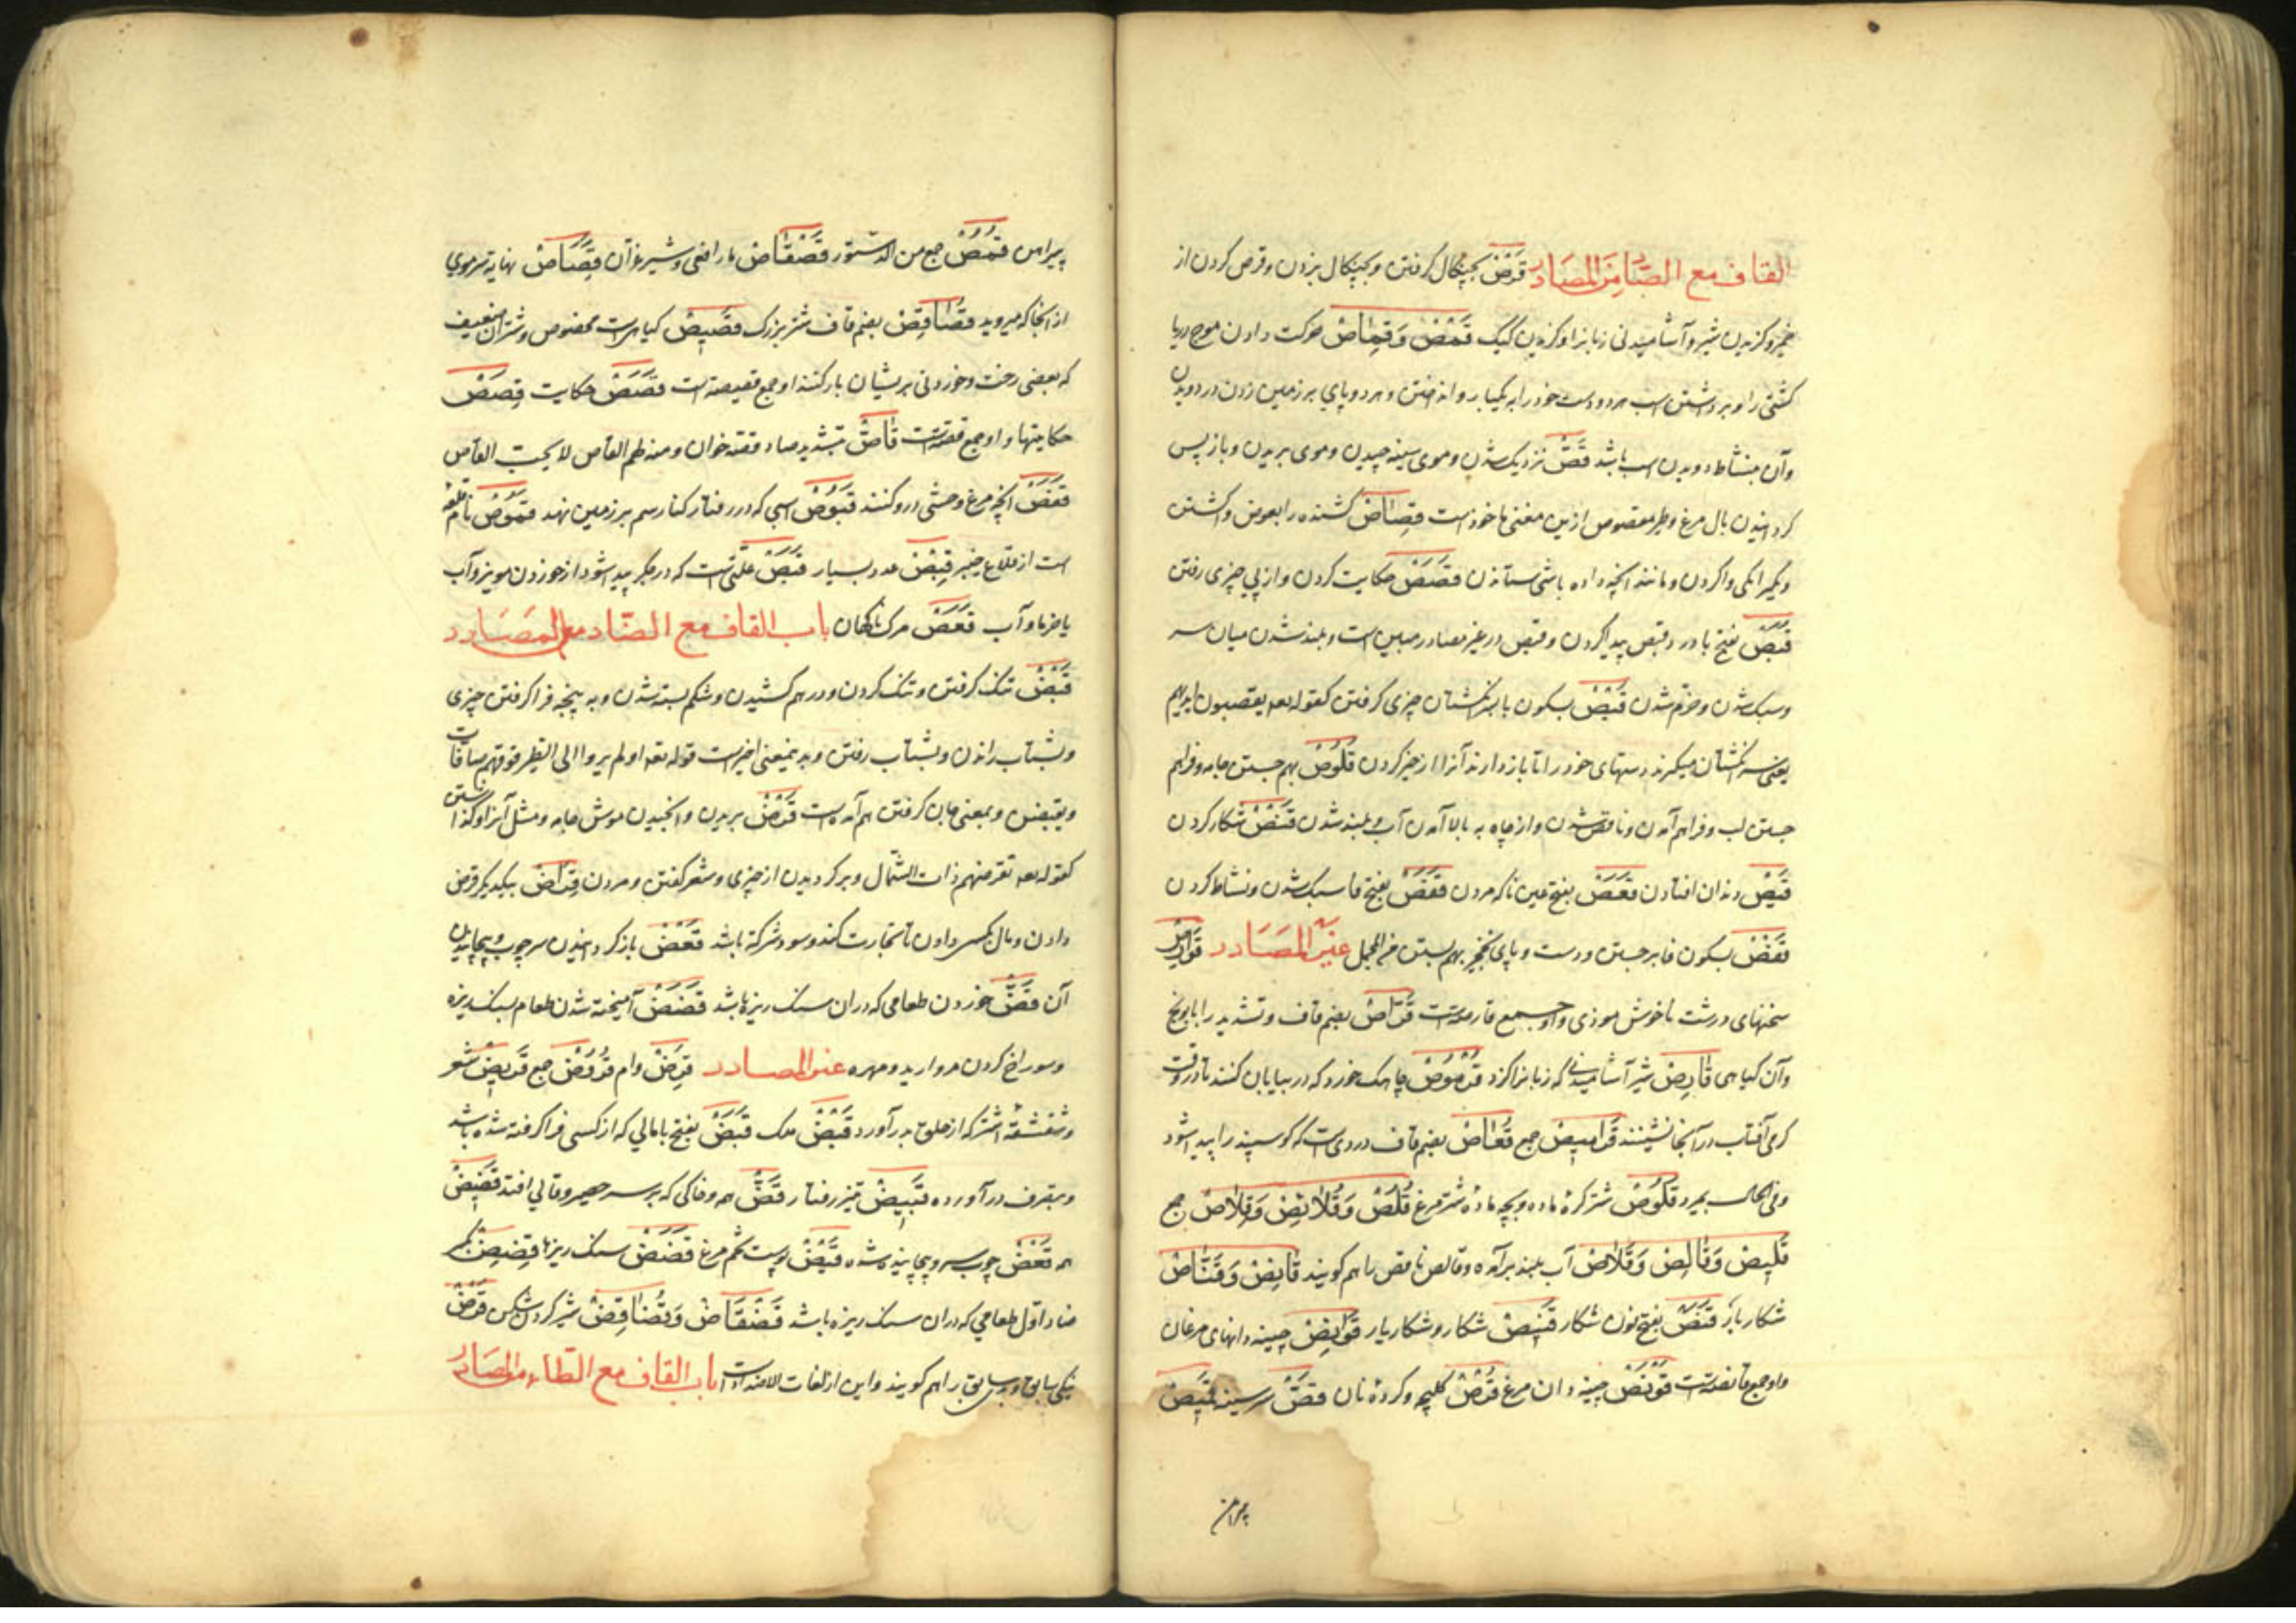 القاف مع الصاد من المصادر قَرْصْ بچنگال گرفتن و بچنگال بزدن و قرص کردن از
خمیر و گزیدن شیر و آشامیدنی زبانرا و گزیدن کیک قَمْصْ وَقِمَاصْ حرکت دادن موج دریا
کشتی را و برداشتن اسب هر دو دست خود را به یکبار و انداختن و هر دو پای بر زمین زدن در دویدن
وآن نشاط دویدن اسب باشد قَصّْ نزدیک شدن و موی سینه چیدن و موی بریدن و باز پس
گردانیدن بال مرغ وطیر مقصوص ازین معنی ماخوذست قِصَاصْ کشنده را بعوض وا کشتن
وانگی واکردن و مانند آنچه داده باشی ستاندن قَصَصْ حکایت کردن و از پی چیزی رفتن
قَبَصْ بفتح با درد قبص پیدا کردن و قبص در غیر مصادر مبین است و بلند شدن میان سر
وسبک شدن و خرّم شدن قَبْصْ بسکون با بسر انگشتان چیزی گرفتن کقوله تعه یقبصون ایدیهم
یعنی بسر انگشتان میگیرند دستهای خود را تا بازدارند آنرا از خیر کردن قُلُوصْ بهم جستن جامه و فراهم
جستن لب و فراهم آمدن و ناقص شدن و از چاه به بالا آمدن آب و بلند شدن قَنْصْ شکار کردن
قَیْصْ دندان افتادن قَعَصْ بفتح عین ناگه مردن قَفَصْ بفتح فا سبک شدن و نشاط کردن
قَفْصْ بسکون فا برجستن و دست و پای نخجیر بهم بستن من المجمل غیر المصادر قَوَارِصْ
سخنهای درشت ناخوش موذی و او جمع قارصه است قُرَّاصْ بضم قاف و تشدید را بابونج
وآن گیاهی قَارِصْ شیر آشامیدنی که زبانرا گزد قُرْمُوصْ چاهک خورد که در بیابان کنند تا در وقت
گرمی آفتاب در آنجا نشینند قَرَامِیصْ جمع قُعَاصْ بضم قاف دردی است که گوسپند را پیدا شود
وفی الحال بمیرد قَلُوصْ شتر کرهٔ ماده و بچه مادهٔ شتر مرغ قُلُصْ وَقَلَائِصْ وَقِلَاصْ جمع
قَلِیصْ وَقَالِصْ وَقَلَّاصْ آب بلند برآمده و قالص ناقص را هم گویند قَانِصْ وَقَنَّاصْ
شکار باز قَنَصْ بفتح نون شکار قَنِیصْ شکار و شکاریار قَوَانِصْ چینه دانهای مرغان
واو جمع قانصه است قَوْنَصْ چینه دان مرغ قُرْصْ کلیچه و کردهٔ نان قَصّْ سر سینه قَمِیصْ
پیراهن
پیراهن قُمُصْ جمع من الدستور قَصْقَاصْ مار افعی و شیر غرّان قِصَاصْ نهایة سر موی
از آنجا که میروید قُصَاقِصْ بضم قاف شتر بزرگ قَصِیصْ گیاهی است مخصوص و شتران ضعیف
که بعضی رخت و خوردنی بریشان بار کنند او جمع قصیصه است قَصَصْ حکایت قِصَصْ
حکایتها و او جمع قصه است قَاصّْ بتشدید صاد قصه خوان و منه طم القاص لا یحب القاص
قَفَصْ آنچه مرغ وحشی درو کنند قَبُوصْ اسپی که در رفتار کنار سم بر زمین نهد قَمُوصْ نام قلعه
است از قلاع خیبر قِبْصْ عدد بسیار قَبَصْ علتی است که در جگر پیدا شود از خوردن مویز و آب
یا خرما و آب قَعَصْ مرگ ناگهان باب القاف مع الضاد من المصادر
قَبْضْ تنک گرفتن و تنک کردن و درهم کشیدن و شکم بسته شدن و به پنجه فرا گرفتن چیزی
و بشتاب راندن و بشتاب رفتن و بدینمعنی اخیرست قوله تعه اولم یروا الی الطیر فوقهم صافات
ویقبضن و بمعنی جان گرفتن هم آمده است قَرْضْ بریدن و انجیدن موش جامه و مثل آنرا و گذاشتن
کقوله تعه تقرضهم ذات الشمال و برگردیدن از چیزی و شعر گفتن و مردن قِرَاضْ بیکدیگر قرض
دادن و مال بکسی دادن تا تجارت کند و سود شرکة باشد قَعْضْ باز گردانیدن سر چوب و پیچانیدن
آن قَضّْ خوردن طعامی که در ان سنک ریزه باشد قَضَضْ آمیخته شدن طعام بسنک ریزه
وسوراخ کردن مروارید و مهره غیر المصادر قَرْضْ وام قُرُوضْ جمع قَرِیضْ شعر
وشقشقهٔ اشتر که از حلق بدر آورد قَبْضْ ملک قَبَضْ بفتح با مالی که از کسی فرا گرفته شده باشد
وبتصرف درآورده قَبِیضْ تیز رفتار قَضّْ همه و خاکی که بر سر حصیر و قالی افتد قَضِیضْ
همه قَعْضْ چوب سر و پیچانیده شده قَیْضْ پوست تخم مرغ قَضَضْ سنک ریزها قَضِضْ بکسر
ضاد اول طعامی که در ان سنک ریزه باشد قَضْقَاضْ وَقُضَاقِضْ شیر گردن شکن قَرْضْ
نیکی سابق و بدی سابق را هم گویند و این از لغات الاضداد است باب القاف مع الطاء من المصادر